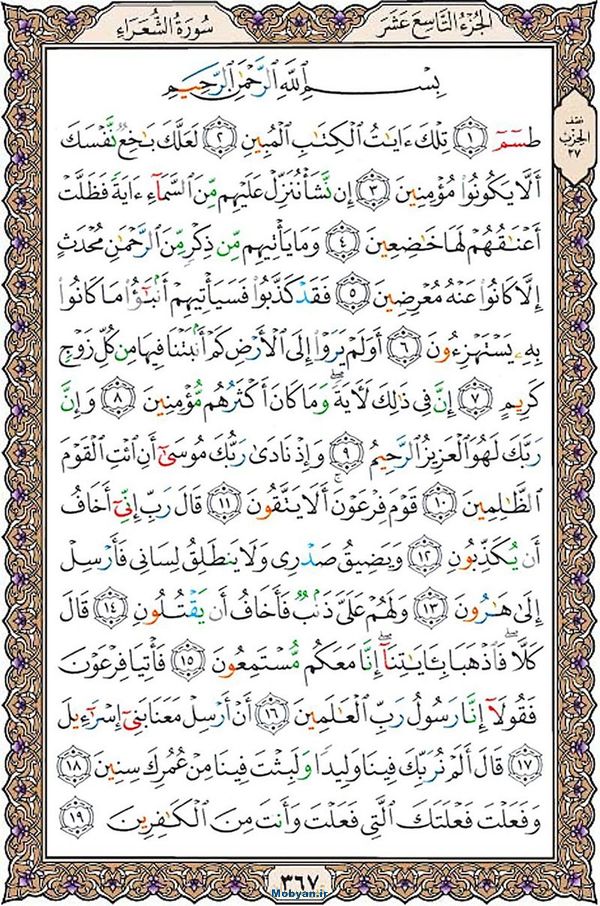 الجزء التاسع عشر
سورة الشعراء
نصف
الحزب
٣٧
بِسْمِ اللَّهِ الرَّحْمَٰنِ الرَّحِيمِ
طسٓمٓ ﴿١﴾ تِلْكَ ءَايَٰتُ الْكِتَٰبِ الْمُبِينِ ﴿٢﴾ لَعَلَّكَ بَٰخِعٌ نَّفْسَكَ
أَلَّا يَكُونُوا مُؤْمِنِينَ ﴿٣﴾ إِن نَّشَأْ نُنَزِّلْ عَلَيْهِم مِّنَ السَّمَآءِ ءَايَةً فَظَلَّتْ
أَعْنَٰقُهُمْ لَهَا خَٰضِعِينَ ﴿٤﴾ وَمَا يَأْتِيهِم مِّن ذِكْرٍ مِّنَ الرَّحْمَٰنِ مُحْدَثٍ
إِلَّا كَانُوا عَنْهُ مُعْرِضِينَ ﴿٥﴾ فَقَدْ كَذَّبُوا فَسَيَأْتِيهِمْ أَنۢبَٰٓؤُا مَا كَانُوا
بِهِۦ يَسْتَهْزِءُونَ ﴿٦﴾ أَوَلَمْ يَرَوْا إِلَى الْأَرْضِ كَمْ أَنۢبَتْنَا فِيهَا مِن كُلِّ زَوْجٍ
كَرِيمٍ ﴿٧﴾ إِنَّ فِى ذَٰلِكَ لَءَايَةً ۖ وَمَا كَانَ أَكْثَرُهُم مُّؤْمِنِينَ ﴿٨﴾ وَإِنَّ
رَبَّكَ لَهُوَ الْعَزِيزُ الرَّحِيمُ ﴿٩﴾ وَإِذْ نَادَىٰ رَبُّكَ مُوسَىٰٓ أَنِ ائْتِ الْقَوْمَ
الظَّٰلِمِينَ ﴿١٠﴾ قَوْمَ فِرْعَوْنَ ۚ أَلَا يَتَّقُونَ ﴿١١﴾ قَالَ رَبِّ إِنِّىٓ أَخَافُ
أَن يُكَذِّبُونِ ﴿١٢﴾ وَيَضِيقُ صَدْرِى وَلَا يَنطَلِقُ لِسَانِى فَأَرْسِلْ
إِلَىٰ هَٰرُونَ ﴿١٣﴾ وَلَهُمْ عَلَىَّ ذَنۢبٌ فَأَخَافُ أَن يَقْتُلُونِ ﴿١٤﴾ قَالَ
كَلَّا ۖ فَاذْهَبَا بِـَٔايَٰتِنَآ ۖ إِنَّا مَعَكُم مُّسْتَمِعُونَ ﴿١٥﴾ فَأْتِيَا فِرْعَوْنَ
فَقُولَآ إِنَّا رَسُولُ رَبِّ الْعَٰلَمِينَ ﴿١٦﴾ أَنْ أَرْسِلْ مَعَنَا بَنِىٓ إِسْرَٰٓءِيلَ
﴿١٧﴾ قَالَ أَلَمْ نُرَبِّكَ فِينَا وَلِيدًا وَلَبِثْتَ فِينَا مِنْ عُمُرِكَ سِنِينَ ﴿١٨﴾
وَفَعَلْتَ فَعْلَتَكَ الَّتِى فَعَلْتَ وَأَنتَ مِنَ الْكَٰفِرِينَ ﴿١٩﴾
٣٦٧
Mobyan.ir